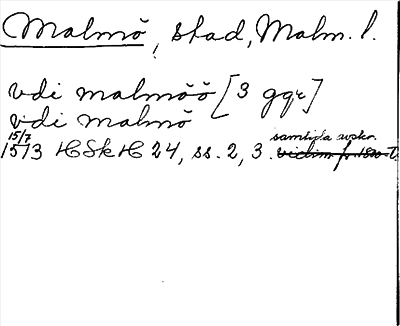 Malmö, stad, Malm. l.
vdi malmöö [3 ggr]
vdi malmö
15/7 samtida avskr.
1573 HSkH 24, ss. 2, 3. vidim fr 1800-t